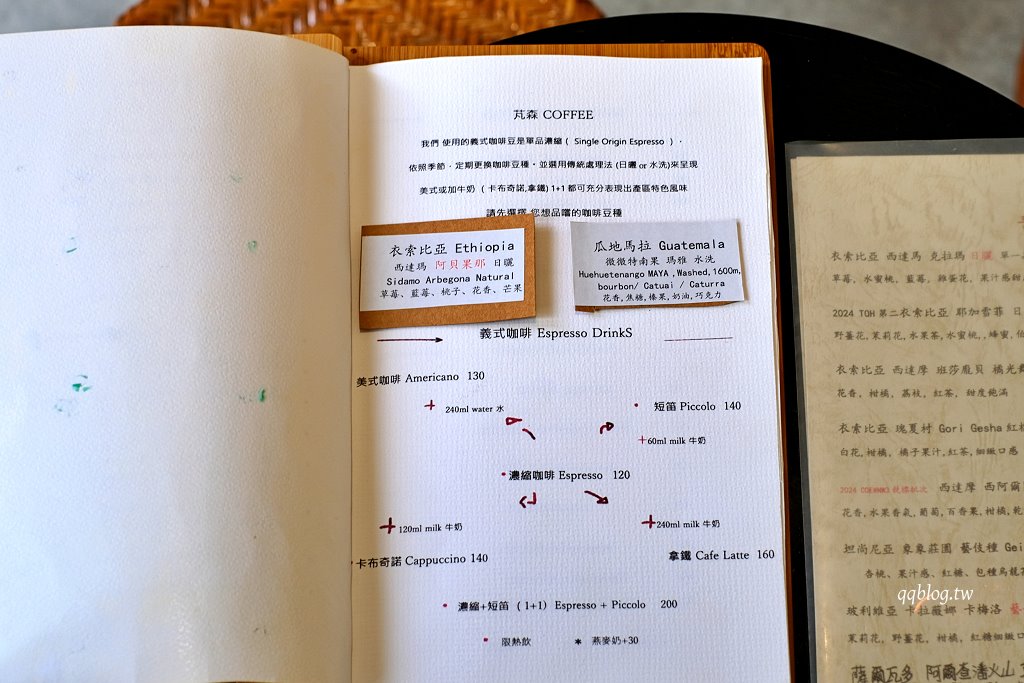 芃森 COFFEE
我們 使用的義式咖啡豆是單品濃縮 ( Single Origin Espresso ) ,
依照季節，定期更換咖啡豆種，並選用傳統處理法 (日曬 or 水洗)來呈現
美式或加牛奶 ( 卡布奇諾,拿鐵) 1+1 都可充分表現出產區特色風味
請先選擇 您想品嚐的咖啡豆種
衣索比亞 Ethiopia
西達瑪 阿貝果那 日曬
Sidamo Arbegona Natural
草莓、藍莓、桃子、花香、芒果
瓜地馬拉 Guatemala
薇薇特南果 瑪雅 水洗
Huehuetenango MAYA ,Washed,1600m,
bourbon/ Catuai / Caturra
花香,焦糖,榛果,奶油,巧克力
義式咖啡 Espresso DrinkS
美式咖啡 Americano 130
+ 240ml water 水
短笛 Piccolo 140
+60ml milk 牛奶
濃縮咖啡 Espresso 120
+ 120ml milk 牛奶
+240ml milk 牛奶
卡布奇諾 Cappuccino 140
拿鐵 Cafe Latte 160
濃縮+短笛 ( 1+1 ) Espresso + Piccolo 200
限熱飲 * 燕麥奶+30
衣索比亞 西達馬 克拉瑪 日曬 單一
草莓, 水蜜桃, 藍莓, 雞蛋花, 果汁感甜
2024 TOH 第二衣索比亞 耶加雪菲 日
野薑花,茉莉花,水果茶,水蜜桃,,蜂蜜,
衣索比亞 西達摩 班莎龐貝 橘光
花香, 柑橘, 荔枝, 紅茶, 甜度飽滿
衣索比亞 瑰夏村 Gori Gesha 紅
白花,柑橘, 橘子果汁,紅茶,細緻口感
2024 西達摩 西阿爾
花香,水果香氣,葡萄,百香果,柑橘,乾
坦尚尼亞 象象莊園 藝伎種 Gei
杏桃、果汁感、紅糖、包種烏龍
qqblog.tw
玻利維亞 卡拉薇娜 卡梅洛 藝
茉莉花, 野薑花, 柑橘, 紅糖細緻
薩爾瓦多 阿爾查潘火山